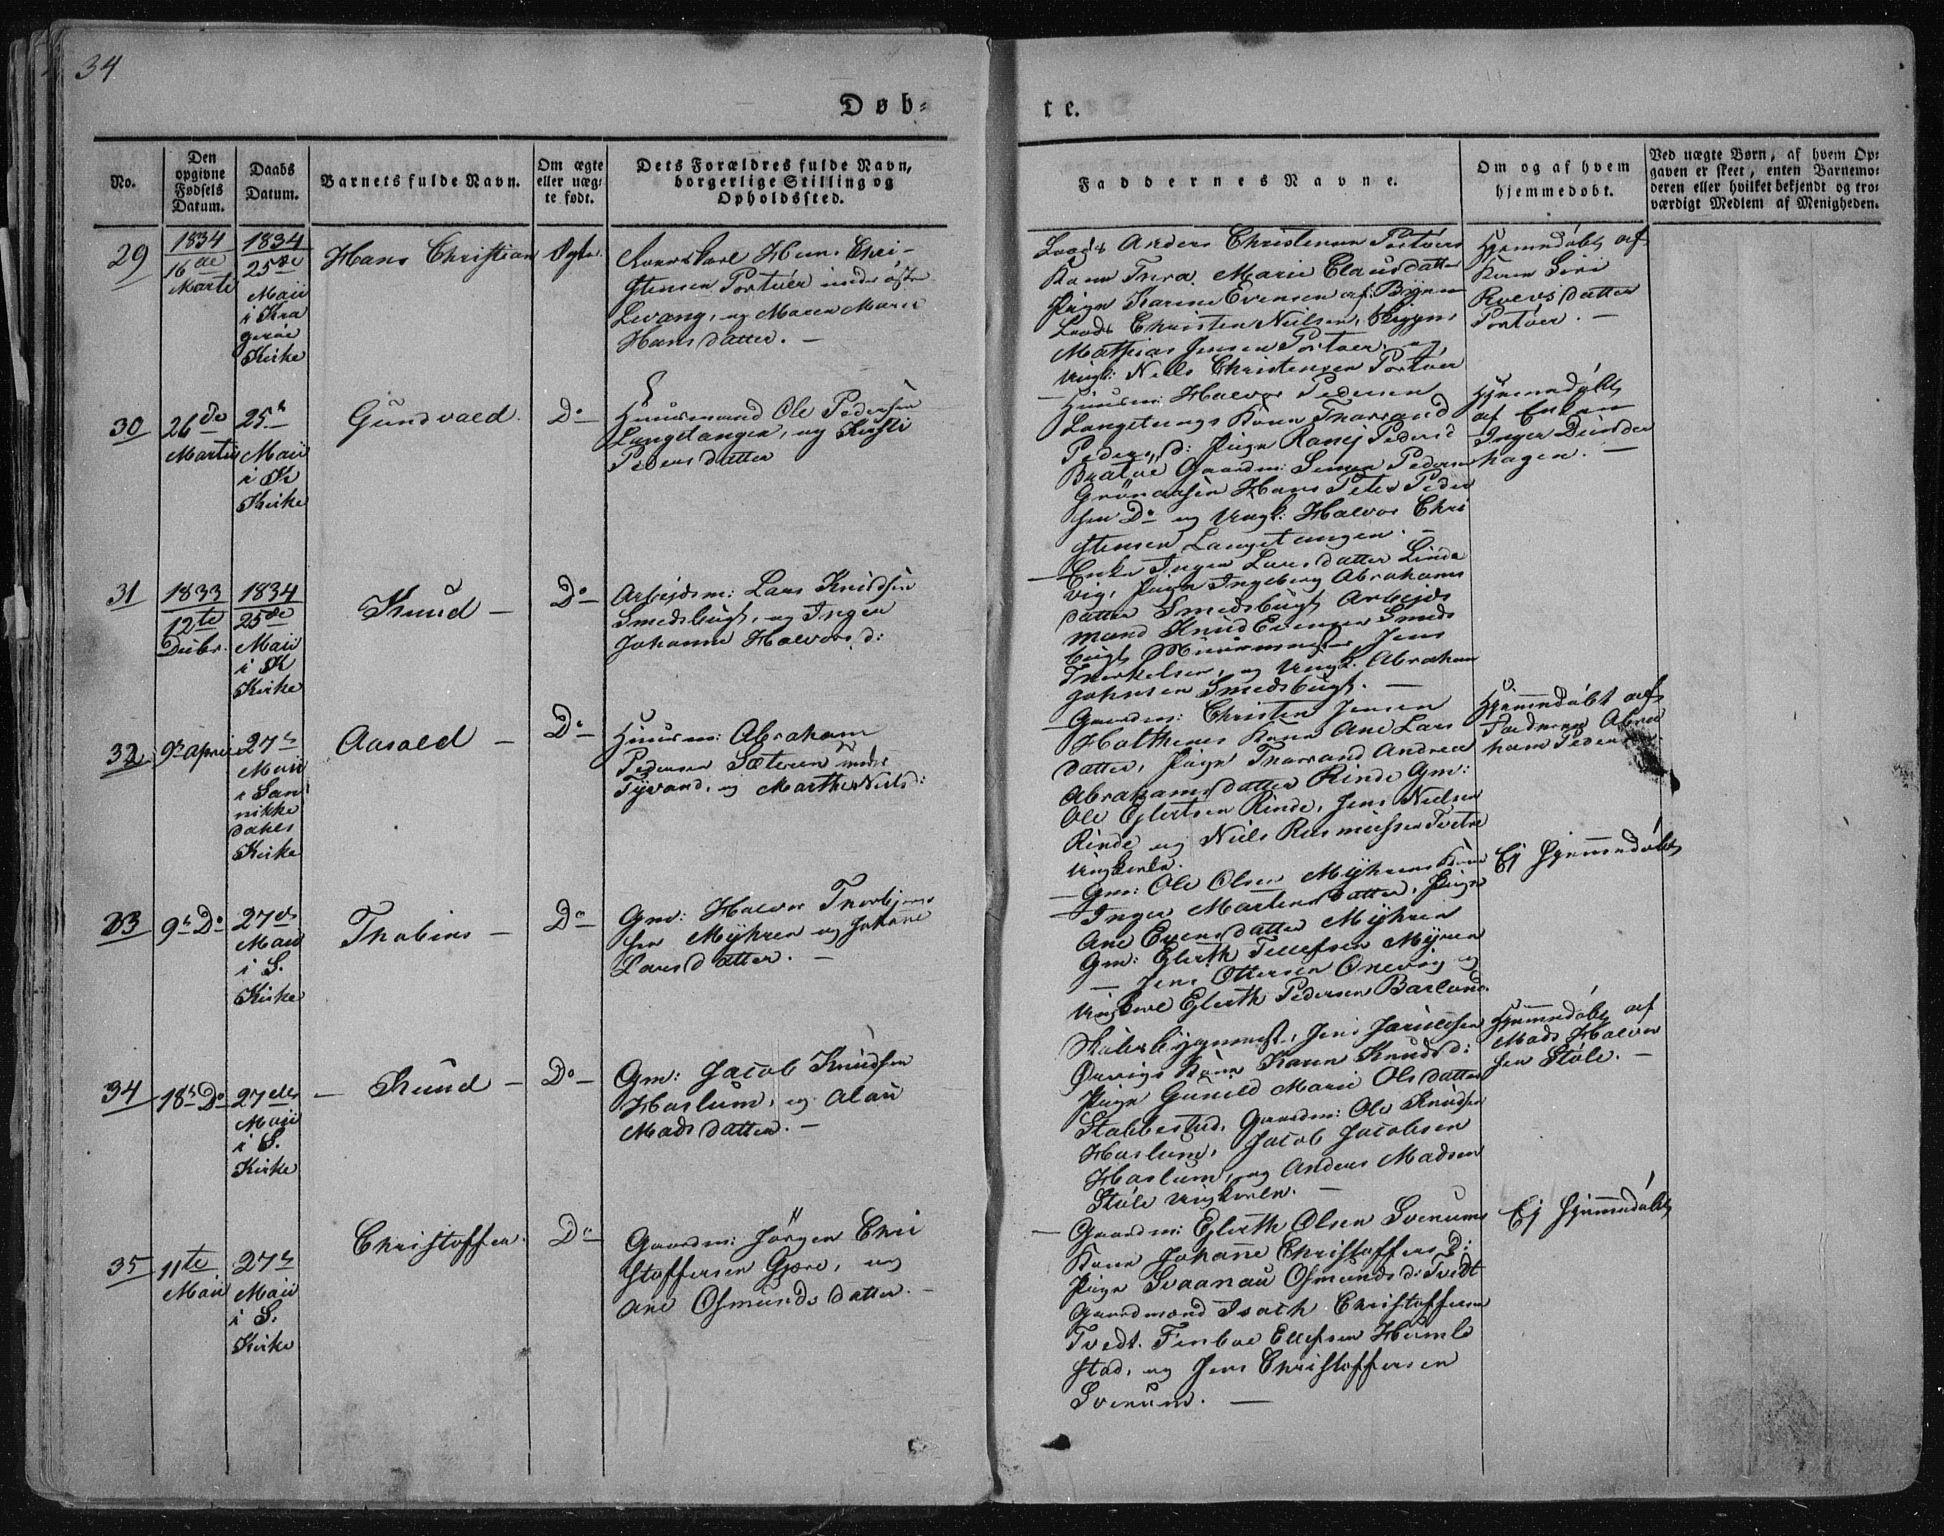 34
Døb-
te.
No.
Den opgivne Fødsels Datum.
Daabs Datum.
Barnets fulde Navn.
Om ægte eller uæg-te født.
Dets Forældres fulde Navn, borgerlige Stilling og Opholdssted.
Faddernes Navne.
Om og af hvem hjemmedøbt.
Ved uægte Børn, af hvem Op-
gaven er skeet, enten Barnemo-
deren eller hvilket bekjendt og tro-
værdigt Medlem af Menigheden.
29
1834
16de
Marts
1834
25de
Maii
i Kra
gerøe
Kirke
Hans Christian
Ægte
Hans Chri-
stensen Portøer under
Levang, og Maren Marie
Hansdatter. —
Lods Anders Christensen Portøers
Kone Thora Marie Clausdatter
Pige Karine Evensen af Byen
Lods Christen Nielsen,
Mathias Jensen Portøer, og
Ungk: Niels Christensen Portøer
Hjemmdøbt af
Kone Siri
Roersdatter
Portøer. —
30
26de
Martii
25de
Maii
i K
Kirke
Gundvald
Do
Huusmand Ole Pedersen
Langetangen, og Kirsti
Pedersdatter
Huusm: Halvor Pedersen
Langetangs Kone Thorrand
Pedersd: Pige Ranej Pedersd
Gaardm: Simen Pedersen
Grønaasen Hans Peter Peder
sen Do og Ungk: Halvor Chri
stensen Langetangen. —
Hjemmdøbt
af Enken
Inger Dunder
hagen. —
31
1833
12te
Decbr.
1834
25de
Maii
i K
Kirke
Knud —
Do
Arbejdsm: Lars Knudsen
Smedsbugt, og Inger
Johanne Halvorsd:
— Enke Inger Larsdatter Linde
vig, Pige Ingeborg Abrahams
datter Smedsbugt Arbejds
mand Knud Evensen Smeds
bugt Muurmester Jens
Therkelsen, og Ungk. Abraham
Johnsen Smedsbugt. —
32
9de April
27de
Maii
i San
nikke
dahls
Kirke
Aasold —
Do
Huusm: Abraham
Pedersen Sæteren under
Tyvand, og Marthe Nielsd:
— Gaardm: Christen Jensen
Holthenes Kone Ane Lars
datter, Pige Thorrand Andrea
Abrahamsdatter Rinde Gm:
Ole Ejlertsen Rinde, Jens Nielsen
Rinde og Niels Rasmussen Tvetne
Ungkarle.
Hjemmdøbt af
Faderen Abra
ham Pedersen.
33
9de Do
27de
Maii
i S.
Kirke
Thobias —
Do
Gm: Halvor Thorbjørns
sen Myhren og Johane
Larsdatter. —
— Gm: Ole Olsen Myhrens Kone
Inger Martensdatter, Pige
Ane Evensdatter Myhren
Gm: Eilerth Tellefsen Myren
— Jens Ottersen Ønevog og
Ungkarl Ejlerth Pedersen Barland.
Ej hjemmedøbt
34
18de Do
27de
Maii
i S.
Kirke
— Knud —
Do —
Gm: Jacob Knudsen
Haslum, og Alau
Madsdatter. —
Skibsbygmest. Jens Jarulfsen
Ørvigs Kone Karen Knudsd:
Pige Gunild Marie Olsdatter
Stabbestad, Gaardm: Ole Knudsen
Haslum, Jacob Jacobsen
Haslum, og Anders Madsen
Støle Ungkarle. —
Hjemmdøbt af
Mads Halvor
sen Støle. —
35
11te
Maii
27de
Maii
i S.
Kirke
Christoffer.
Do
Gaardm: Jørgen Chri
stoffersen Gjøre, og
Ane Osmundsdatter. —
— Gaardm: Ejlerth Olsen Svenums
Kone Johanne Christoffersd:
Pige Svaanau Osmundsd: Tvedt
Gaardmand Isach Christoffersen
Tvedt. Finboe Ellefsen Humle
stad, og Jens Christoffersen
Svenum. —
Ej hjemmedøbt